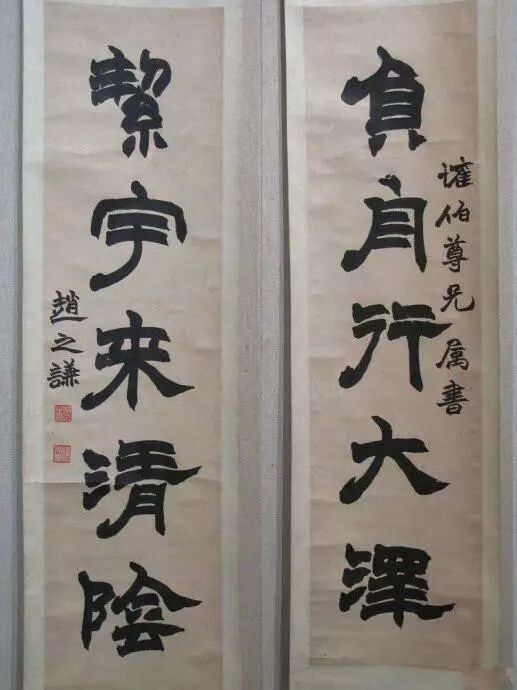 負行大澤
伯尊兄属書
絜宇来清陰
趙之謙